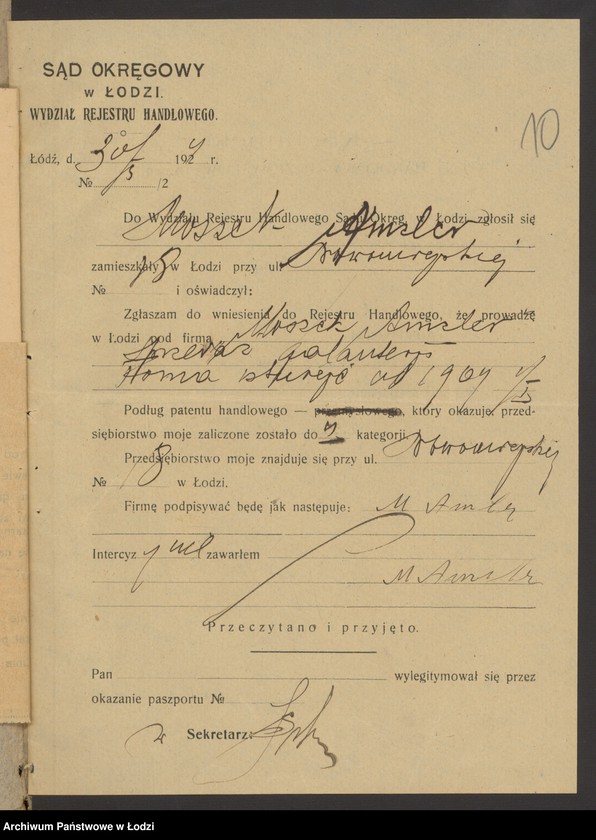 SĄD OKRĘGOWY
w ŁODZI.
WYDZIAŁ REJESTRU HANDLOWEGO.
10
Łódź, d. 30/3 1924 r.
№ /2
Do Wydziału Rejestru Handlowego Sądu Okręg. w Łodzi zgłosił się
Moszek Amzler
zamieszkały w Łodzi przy ul. Nowomiejskiej
№ 18 i oświadczył:
Zgłaszam do wniesienia do Rejestru Handlowego, że prowadzę
w Łodzi pod firmą „Moszek Amzler"
Sprzedaż galanterji
Firma istnieje od 1909
Podług patentu handlowego — przemysłowego, który okazuję, przed-
siębiorstwo moje zaliczone zostało do kategorji
Przedsiębiorstwo moje znajduje się przy ul. Nowomiejskiej
№ 18 w Łodzi.
Firmę podpisywać będę jak następuje: M Amzler
Intercyz nie zawarłem
M Amzler
Przeczytano i przyjęto.
Pan wylegitymował się przez
okazanie paszportu №
Sekretarz:
Archiwum Państwowe w Łodzi